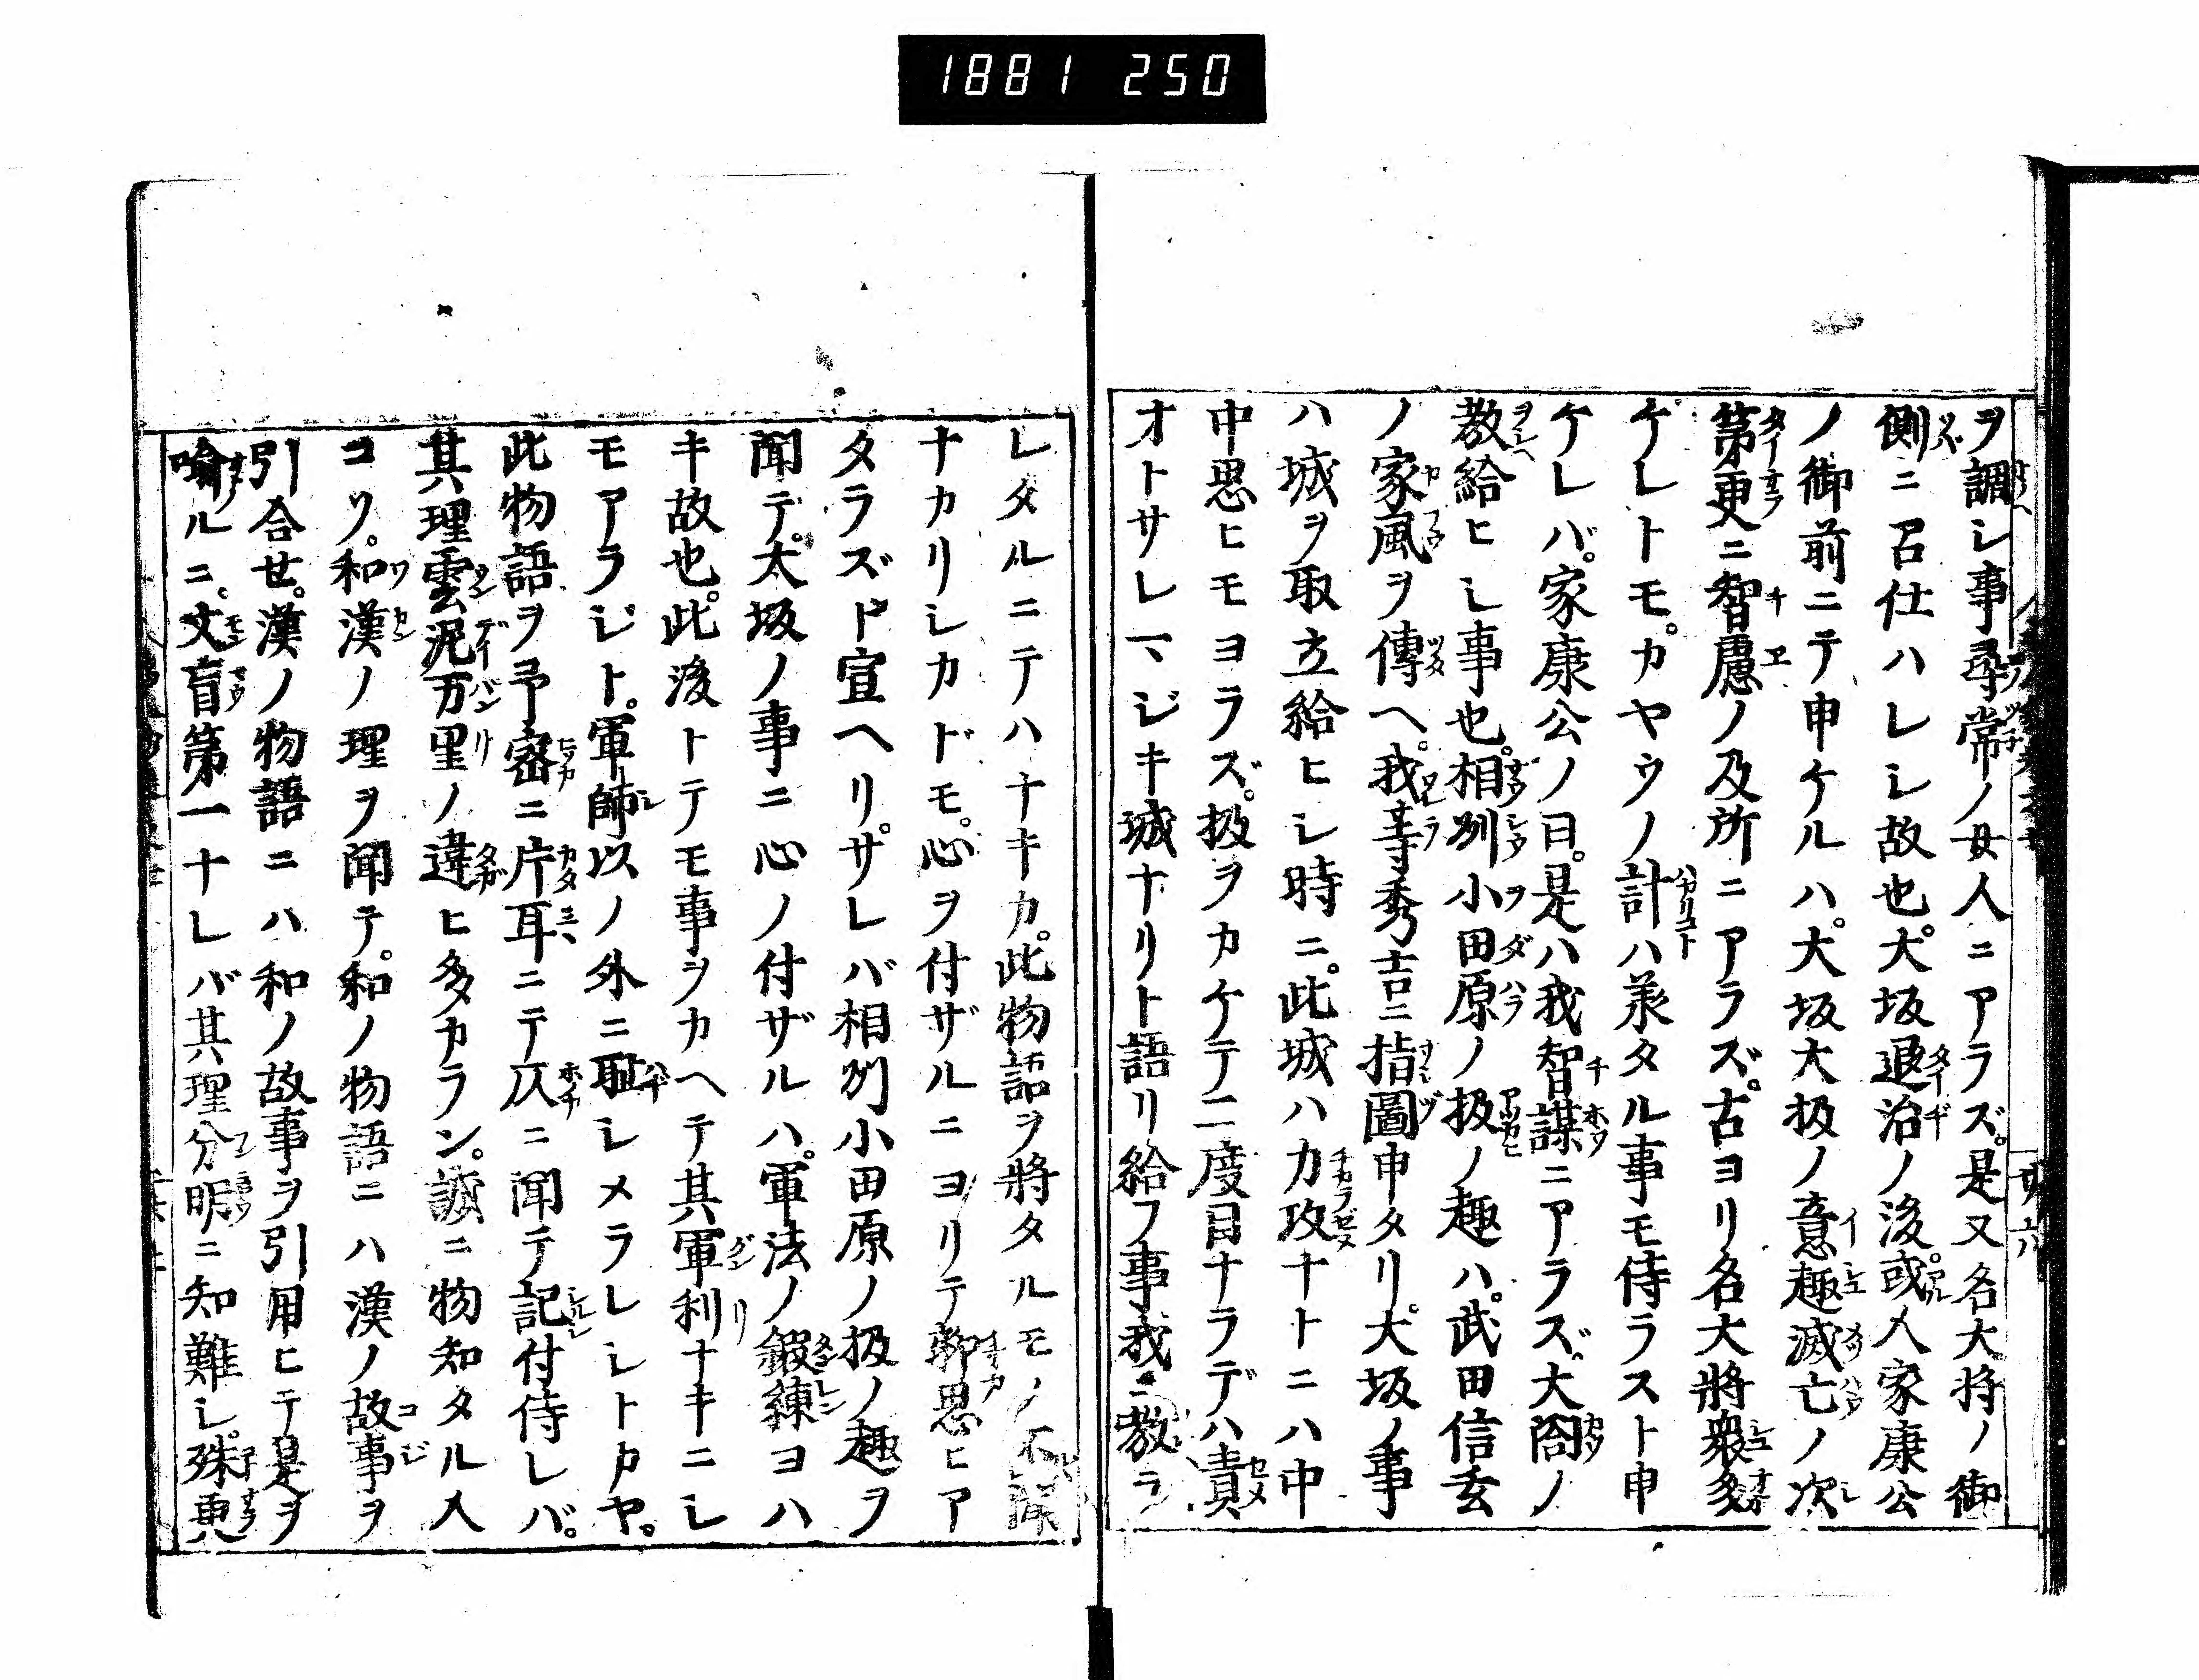 1881 250
ヲ調シ事尋常ノ女人ニアラズ。是又名大将ノ御
側ニ召仕ハレシ故也。大坂退治ノ後。或人家康公
ノ御前ニテ申ケルハ。大坂大扱ノ意趣滅亡ノ次
第更ニ智慮ノ及所ニアラズ。古ヨリ名大將衆多
ケレトモ。カヤウノ計ハ羕タル事モ侍ラスト申
ケレバ。家康公ノ曰。是ハ我智謀ニアラズ。大閤ノ
教給ヒシ事也。相州小田原ノ扱ノ趣ハ。武田信玄
ノ家風ヲ傳ヘ。我等秀吉ニ指圖申タリ。大坂ノ事
ハ城ヲ取立給ヒシ時ニ。此城ハ力攻ナトニハ中
中思ヒモヨラズ。扱ヲカケテ二度目ナラデハ責
オトサレマジキ城ナリト語リ給フ事我ニ教ラ
レタルニテハナキカ。此物語ヲ將タルモノ不
ナカリシカドモ。心ヲ付ザルニヨリテ聊思ヒア
タラズト宣ヘリ。サレバ相州小田原ノ扱ノ趣ヲ
聞テ。大坂ノ事ニ心ノ付ザルハ。軍法ノ鍛練ヨハ
キ故也。此後トテモ事ヲカヘテ其軍利ナキニシ
モアラジト。軍師以ノ外ニ耻シメラレシトカヤ。
此物語ヲ予密ニ片耳ニテ仄ニ聞テ記付侍レバ。
其理雲泥万里ノ違ヒ多カラン。誠ニ物知タル人
コソ。和漢ノ理ヲ聞テ。和ノ物語ニハ漢ノ故事ヲ
引合セ。漢ノ物語ニハ和ノ故事ヲ引用ヒテ是ヲ
喩ルニ。文盲第一ナレバ其理分明ニ知難シ。殊更